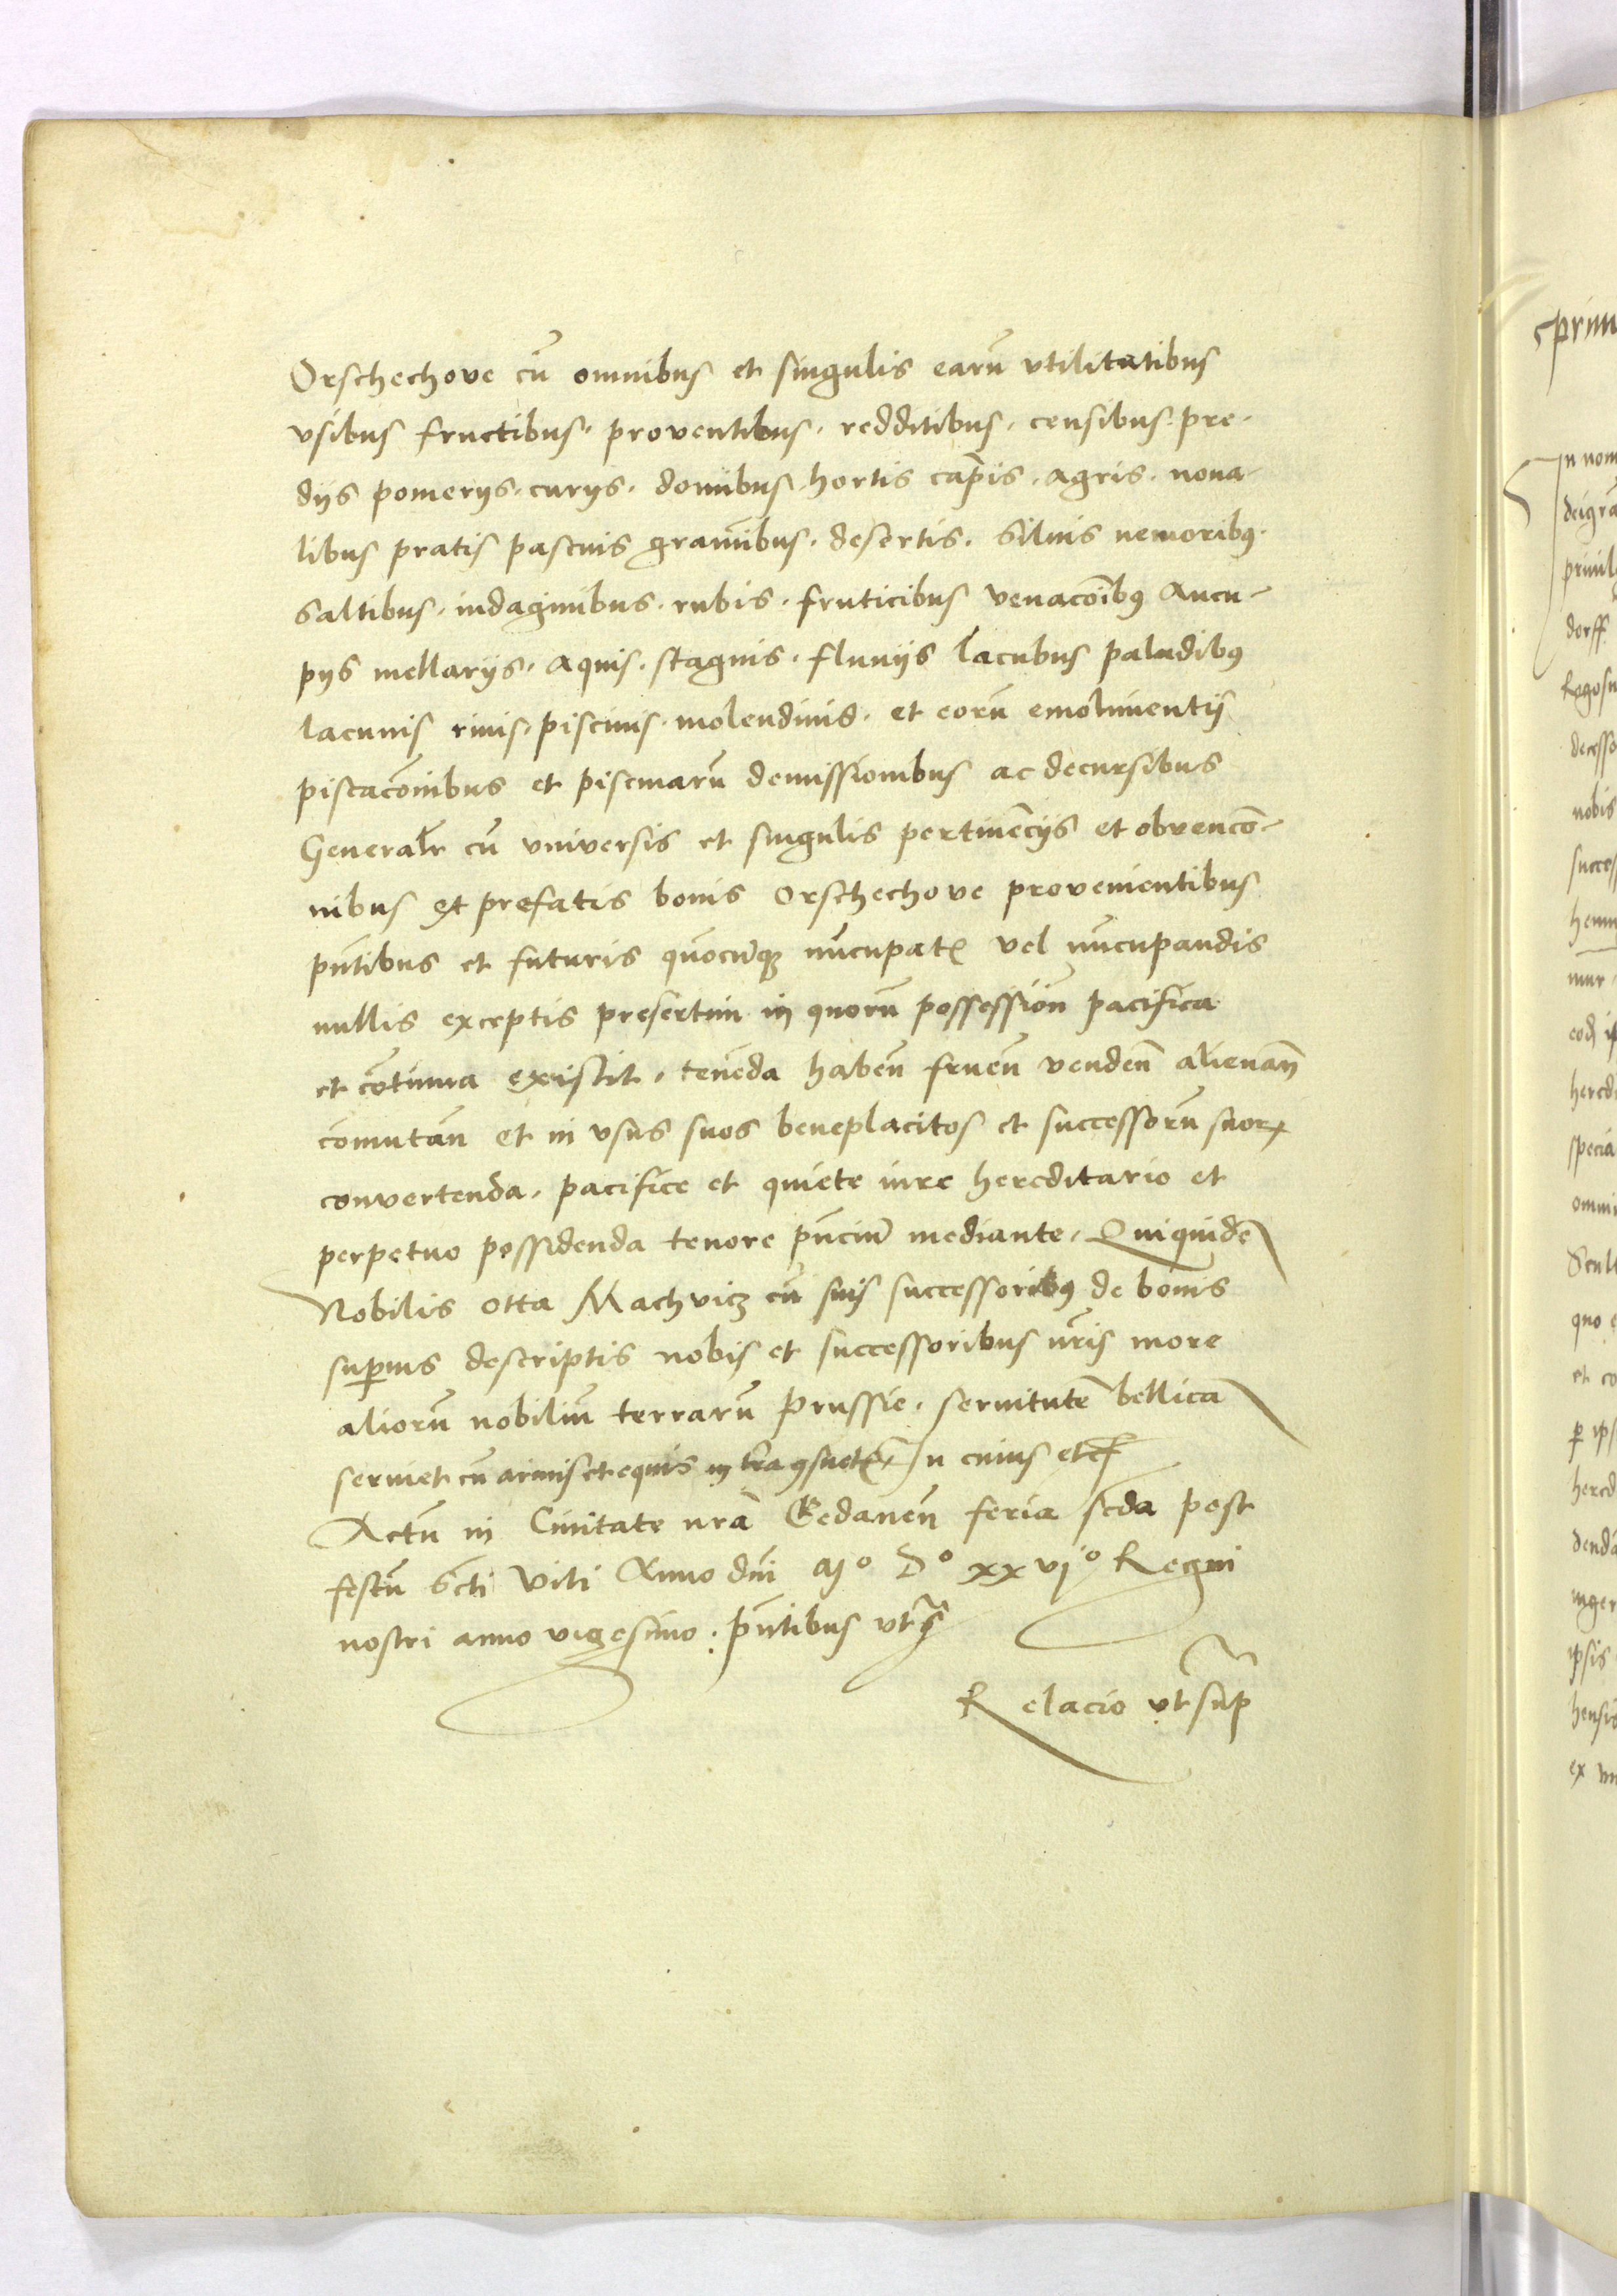 Orschechove cū omnibus et singulis earū vtilitatibus
vsibus fructibus · proventibus · redditibus · censibus · pre-
dijs pomerijs · curijs · domibus · hortis cāpis · agris · noua-
libus pratis pascuis gramībus · desertis · Siluis nemoribꝰ ·
Saltibus · indaginibus · rubis · fruticibus venacōibꝰ Aucu-
pijs mellarijs · Aquis · stagnis · fluuijs Lacubus paludibꝰ
lacunis riuis · piscinis · molendinis · et eorū emolumentijs
piscacōnibus et piscinarū demissionibus ac decursibus
Generalr̄ cū vniversis et singulis pertinēcijs et obvencō-
nibus ex prefatis bonis Orschechove provenientibus
pn̄tibus et futuris quōcūqꝫ nūcupatꝭ vel nūcupandis
nullis exceptis presertim in quorū possessiōn pacifica
et cōtinua existit · tenēda habēn fruēn vendēn alienān
comutān et in vsus suos beneplacitos et successorū suorꝝ
convertenda · pacifice et quiete iure hereditario et
perpetuo possidenda tenore pn̄ciū mediante · Quiquidē
Nobilis otta Machvicz cū suis successoribꝰ de bonis
sup̄ius descriptis nobis et successoribus nr̄is more
aliorū nobiliū terrarū prussie · seruitutē bellicā
seruiet cū armis et equis in tra ꝯsuetꝭ · In cuius etcꝭ
Actū in Ciuitate nr̄a Gedanēn feria scd̄a post
festū Sc̄ti Viti Anno dn̄i Mº Dº xxvjº Regni
nostri anno vigesimo · pn̄tibus vts̄
Relacio vt sup̄